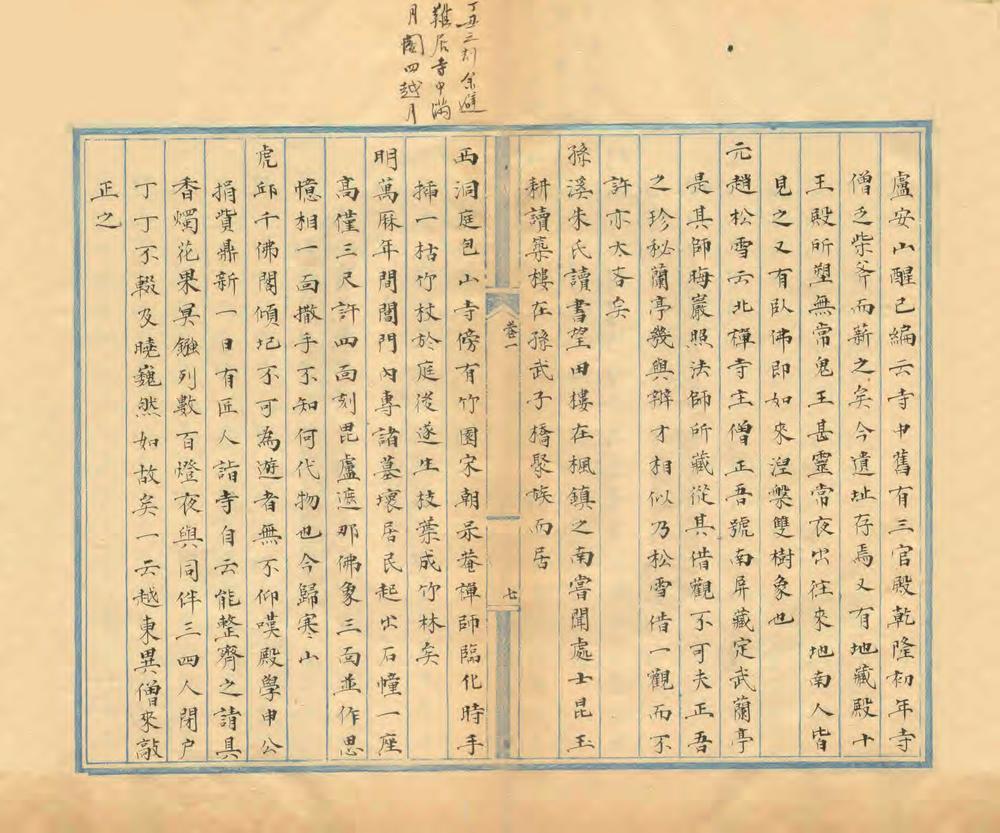 丁丑之刻余避
難居寺中滿
月閣四越月
盧安山醒已編云寺中舊有三官殿乾隆初年寺
僧乏柴斧而薪之矣今遺址存焉又有地藏殿十
王殿所塑無常鬼王甚靈常夜出往來地南人皆
見之又有臥佛即如來涅槃雙樹象也
元趙松雪云北禪寺主僧正吾號南屏藏定武蘭亭
是其師晦巖照法師所藏從其借觀不可夫正吾
之珍秘蘭亭幾與辯才相似乃松雪借一觀而不
許亦太吝矣
孫溪朱氏讀書望田樓在楓鎮之南嘗聞處士昆玉
耕讀築樓在孫武子橋聚族而居
卷一
七
西洞庭包山寺傍有竹園宋朝杲菴禪師臨化時手
插一枯竹杖於庭後遂生枝葉成竹林矣
明萬厤年間閶門內專諸墓壞居民起出石幢一座
高僅三尺許四面刻毘盧遮那佛象三面並作思
憶相一面撒手不知何代物也今歸寒山
虎邱千佛閣傾圮不可為遊者無不仰嘆殿學申公
捐貲鼎新一日有匠人詣寺自云能整齊之請具
香燭花果冥鏹列數百燈夜與同伴三四人閉户
丁丁不輟及曉巍然如故矣一云越東異僧來敲
正之